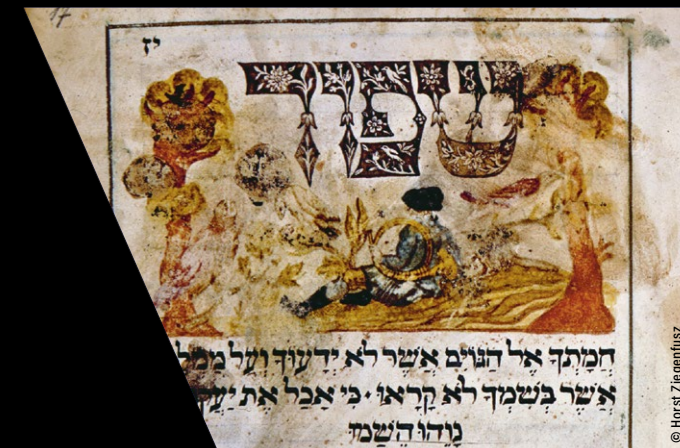 17
יז
שפוך
חֲמָתְךָ אֶל הַגּוֹיִם אֲשֶׁר לֹא יְדָעוּךָ וְעַל
אֲשֶׁר בְּשִׁמְךָ לֹא קָרָאוּ · כִּי אָכַל אֶת
נָוֵהוּ הֵשַׁמּוּ
© Horst Ziegenfusz